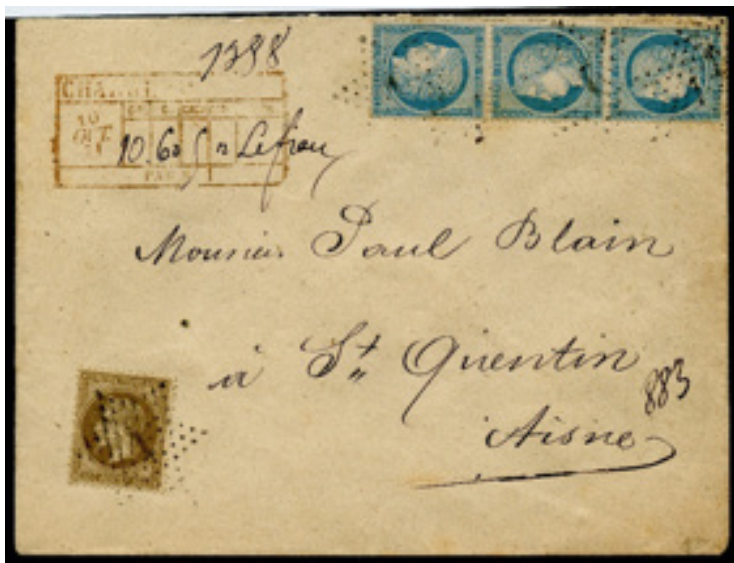 1398
CHARGÉ
10
OCT
71
10.60
Monsieur Paul Blain
à St. Quentin
883
Aisne